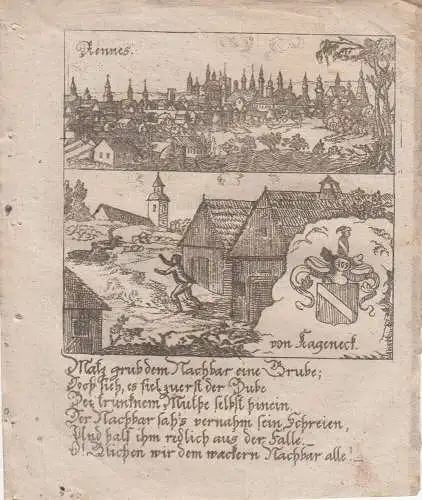 Rennes.
von Kageneck
Matz grub dem Nachbar eine Grube;
Doch sieh, es fiel zuerst der Bube
Bei trunknem Muthe selbst hinein.
Der Nachbar sah's vernahm sein Schreien,
Und half ihm redlich aus der Falle. –
O! Glichen wir dem wackern Nachbar alle!